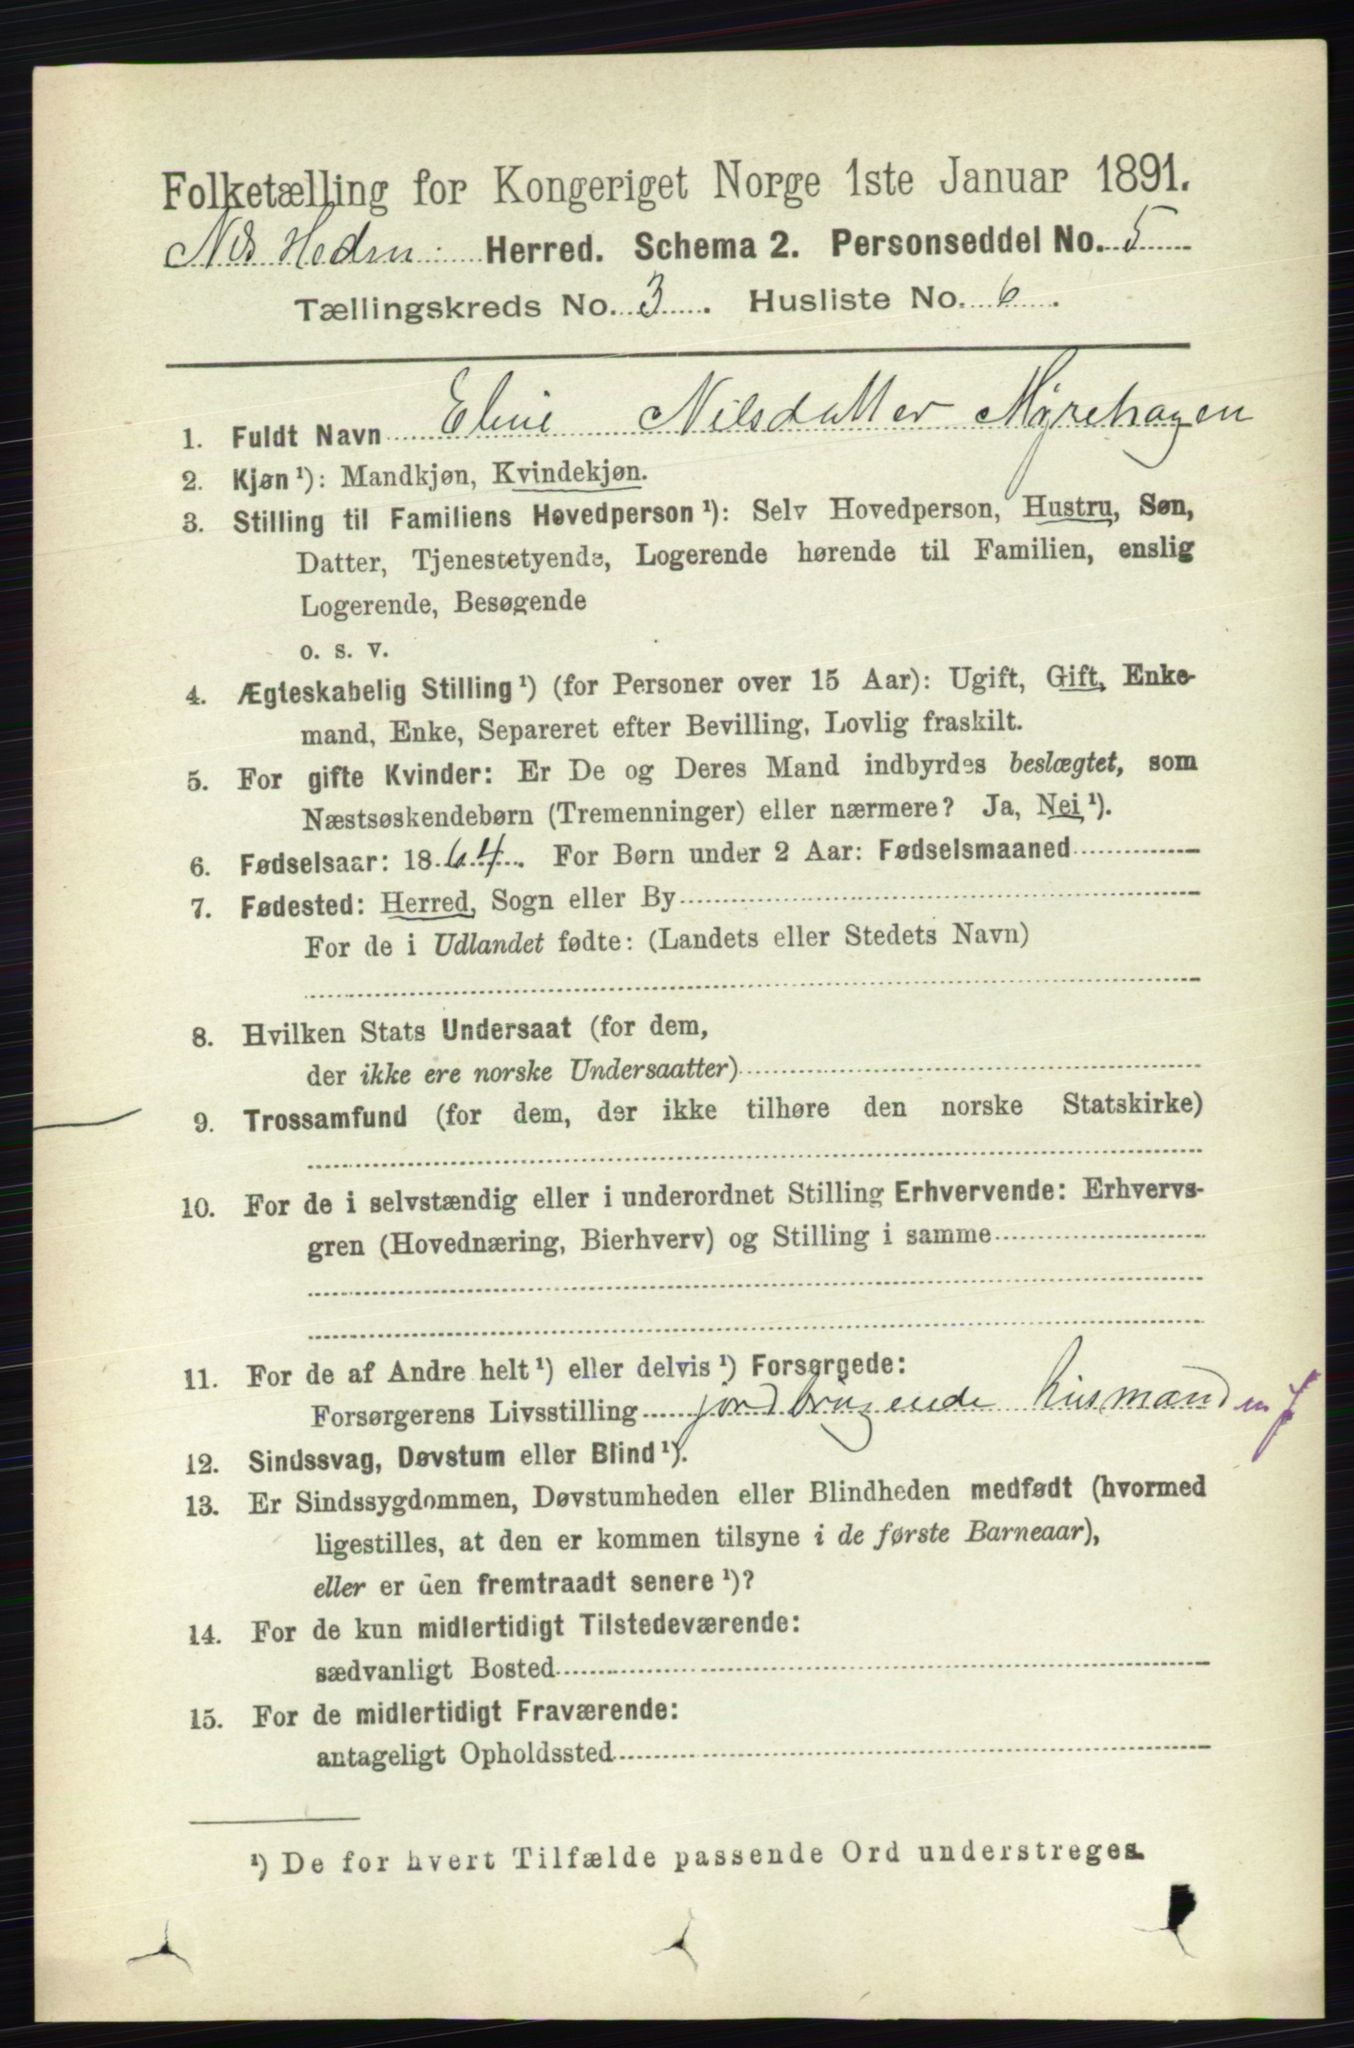 Folketælling for Kongeriget Norge 1ste Januar 1891.
Herred. Schema 2. Personseddel No. 5
Tællingskreds No. 3. Husliste No. 6.
1. Fuldt Navn Eline Nilsdatter Myrehagen
2. Kjøn¹): Mandkjøn, Kvindekjøn.
3. Stilling til Familiens Hovedperson¹): Selv Hovedperson, Hustru, Søn,
Datter, Tjenestetyende, Logerende hørende til Familien, enslig
Logerende, Besøgende
o. s. v.
4. Ægteskabelig Stilling¹) (for Personer over 15 Aar): Ugift, Gift, Enke-
mand, Enke, Separeret efter Bevilling, Lovlig fraskilt.
5. For gifte Kvinder: Er De og Deres Mand indbyrdes beslægtet, som
Næstsøskendebørn (Tremenninger) eller nærmere? Ja, Nei¹).
6. Fødselsaar: 1864. For Børn under 2 Aar: Fødselsmaaned
7. Fødested: Herred, Sogn eller By
For de i Udlandet fødte: (Landets eller Stedets Navn)
8. Hvilken Stats Undersaat (for dem,
der ikke ere norske Undersaatter)
9. Trossamfund (for dem, der ikke tilhøre den norske Statskirke)
10. For de i selvstændig eller i underordnet Stilling Erhvervende: Erhvervs-
gren (Hovednæring, Bierhverv) og Stilling i samme
11. For de af Andre helt¹) eller delvis¹) Forsørgede:
Forsørgerens Livsstilling jordbrugende husmand
12. Sindssvag, Døvstum eller Blind¹).
13. Er Sindssygdommen, Døvstumheden eller Blindheden medfødt (hvormed
ligestilles, at den er kommen tilsyne i de første Barneaar),
eller er den fremtraadt senere¹)?
14. For de kun midlertidigt Tilstedeværende:
sædvanligt Bosted
15. For de midlertidigt Fraværende:
antageligt Opholdssted
¹) De for hvert Tilfælde passende Ord understreges.